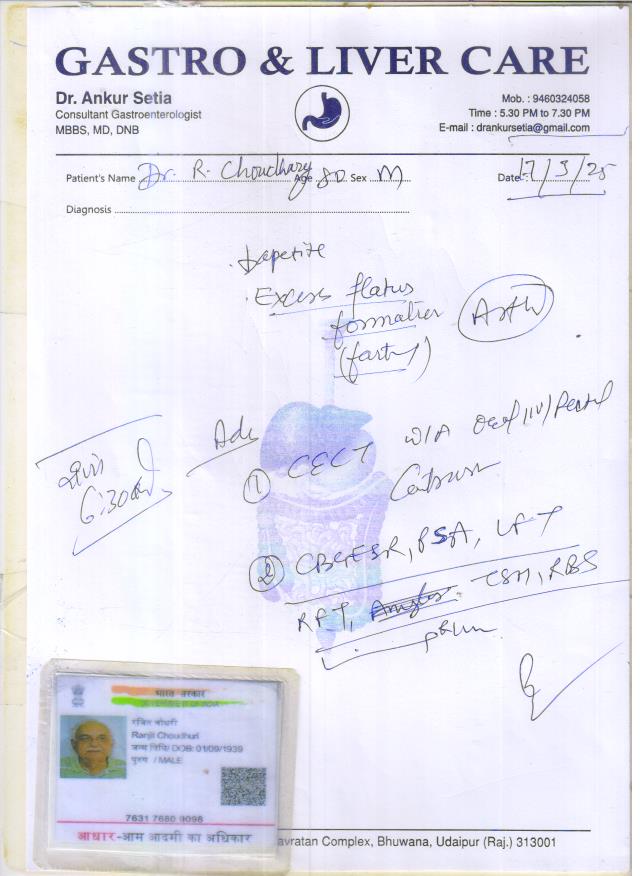 GASTRO & LIVER CARE
Dr. Ankur Setia
Consultant Gastroenterologist
MBBS, MD, DNB
Mob. : 9460324058
Time : 5.30 PM to 7.30 PM
E-mail : drankursetia@gmail.com
Patient's Name Dr. R. Choudhary Age 80 Sex M Date : 17/3/25
Diagnosis
Excess flatus
formation
(farty)
Adv
① CECT W/A Oral/IV/Rectal
Contrast
6:30
② CBC, ESR, PSA, LFT
RFT, TSH, RBS
भारत सरकार
GOVERNMENT OF INDIA
रंजित चौधरी
Ranjit Choudhuri
जन्म तिथि/ DOB: 01/09/1939
पुरुष / MALE
7631 7680 9098
आधार-आम आदमी का अधिकार
avratan Complex, Bhuwana, Udaipur (Raj.) 313001